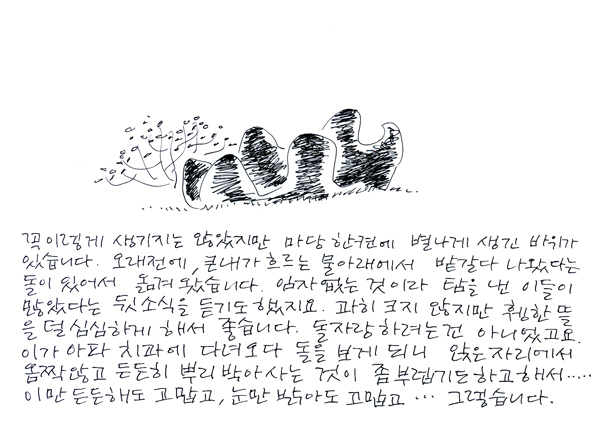 꼭 이렇게 생기지는 않았지만 마당 한켠에 별나게 생긴 바위가
있습니다. 오래전에, 큰내가 흐르는 물아래에서 밭갈다 나왔다는
돌이 있어서 옮겨 왔습니다. 임자없는 것이라 탐을 낸 이들이
많았다는 뒷소식을 듣기도 했지요. 과히 크지 않지만 휑한 뜰
을 덜 심심하게 해서 좋습니다. 돌자랑하려는건 아니었고요.
이가 아파 치과에 다녀오다 돌을 보게 되니 앉은자리에서
옴짝않고 든든히 뿌리박아사는 것이 좀부럽기도하고해서.....
이만 든든해도 고맙고, 눈만 밝아도 고맙고 … 그렇습니다.